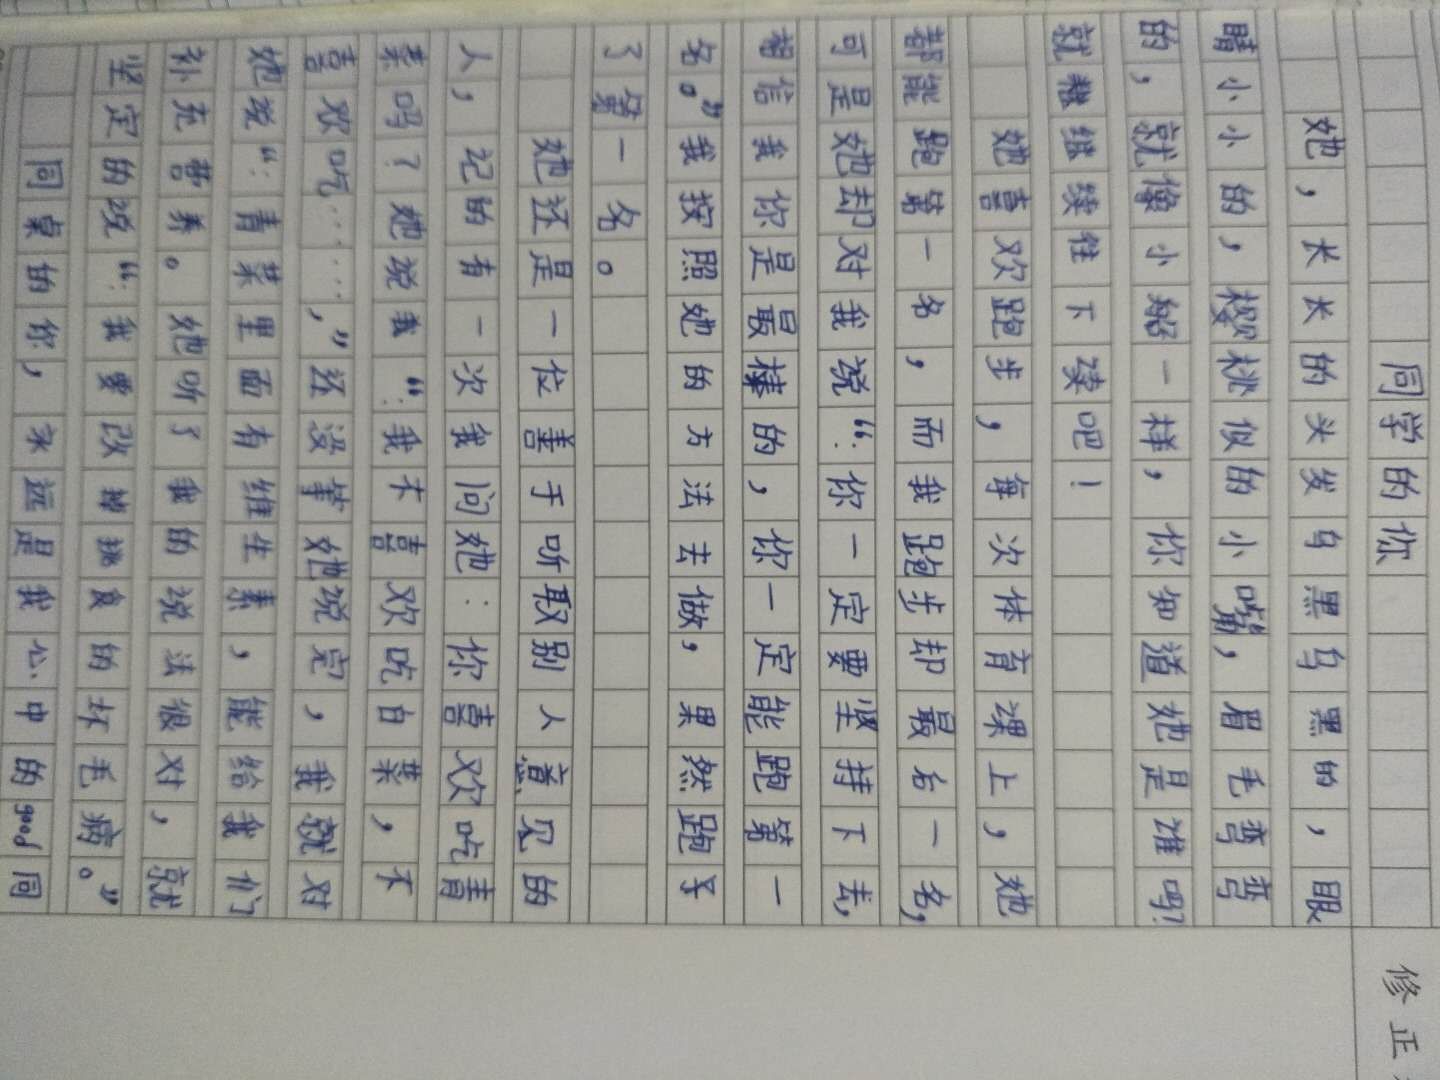 同学的你
她，长长的头发乌黑乌黑的，眼
睛小小的，樱桃似的小嘴，眉毛弯弯
的，就像小船一样，你知道她是谁吗？
就继续往下读吧！
她喜欢跑步，每次体育课上，她
都能跑第一名，而我跑步却最后一名，
可是她却对我说“：你一定要坚持下去，
相信我你是最棒的，你一定能跑第一
名。”我按照她的方法去做，果然跑
了第一名。
她还是一位善于听取别人意见的
人，记的有一次我问她：你喜欢吃青
菜吗？她说我“：我不喜欢吃白菜，不
喜欢吃……，”还没等她说完，我就对
她说“：青菜里面有维生素，能给我们
补充营养。她听了我的说法很对，就
坚定的说“：我要改掉挑食的坏毛病。”
同桌的你，永远是我心中的good同
修正